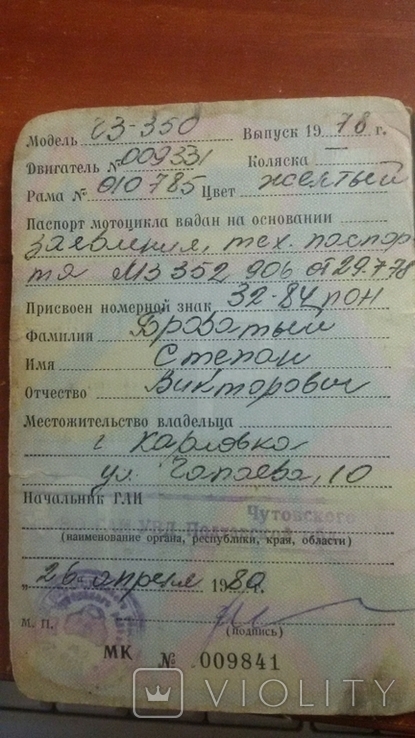 Модель ЧЗ-350 Выпуск 1978 г.
Двигатель № 009331 Коляска —
Рама № 010785 Цвет желтый
Паспорт мотоцикла выдан на основании
заявления, тех. паспор-
та МЗ 352 906 от 29.7.78
Присвоен номерной знак 32-84 ПОН
Фамилия Бровотый
Имя Степан
Отчество Викторович
Местожительство владельца
г. Карловка
ул. Чапаева, 10
Начальник ГАИ
Чутовского
(наименование органа, республики, края, области)
„26" апреля 1980 г.
М. П. (подпись)
МК № 009841
VIOLITY